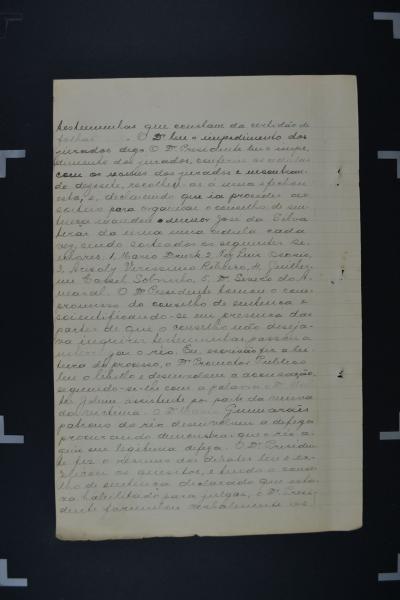 testemunhas que constam da certidão de
folhas . O Dr leu o impedimento dos
jurados digo O Dr. Presidente leu o impe-
dimento dos jurados, conferiu as cedulas
com os nomes dos jurados e encontran-
do , recolheu-as a urna e fechou
esta, e, declarando que ia proceder ao
sorteio para organizar o conselho de sen-
tença mandou o menor José da Silva
tirar da urna uma cedula cada
vez, sendo sorteados os seguintes Se-
nhores: 1, Mario 2, Luiz
3, Verissimo Ribeiro, 4, Guilher-
me Sobrinho, 5, Dr.
O Dr Presidente tomou o com-
promisso do conselho de sentença e
scientificando-se em presença das
partes de que o conselho não deseja-
va inquirir testemunhas, passou a
o réo. Eu, escrivão fiz a lei-
tura do processo, o Dr Promotor Publico
leu o libello e desenvolveu a accusação,
seguindo-se-lhe com a palavra o Dr
assistente por parte da
da victima. O Dr Guimarães
patrono do réo desenvolveu a defeza
procurando demonstrar que o réo a-
giu em legitima defeza. O Dr Presiden-
te fez o resumo dos debates leu e ex-
plicou os quesitos, e tendo o conse-
lho de sentença declarado que esta-
va habilitado para julgar, o Dr Presi-
dente formulou verbalmente os